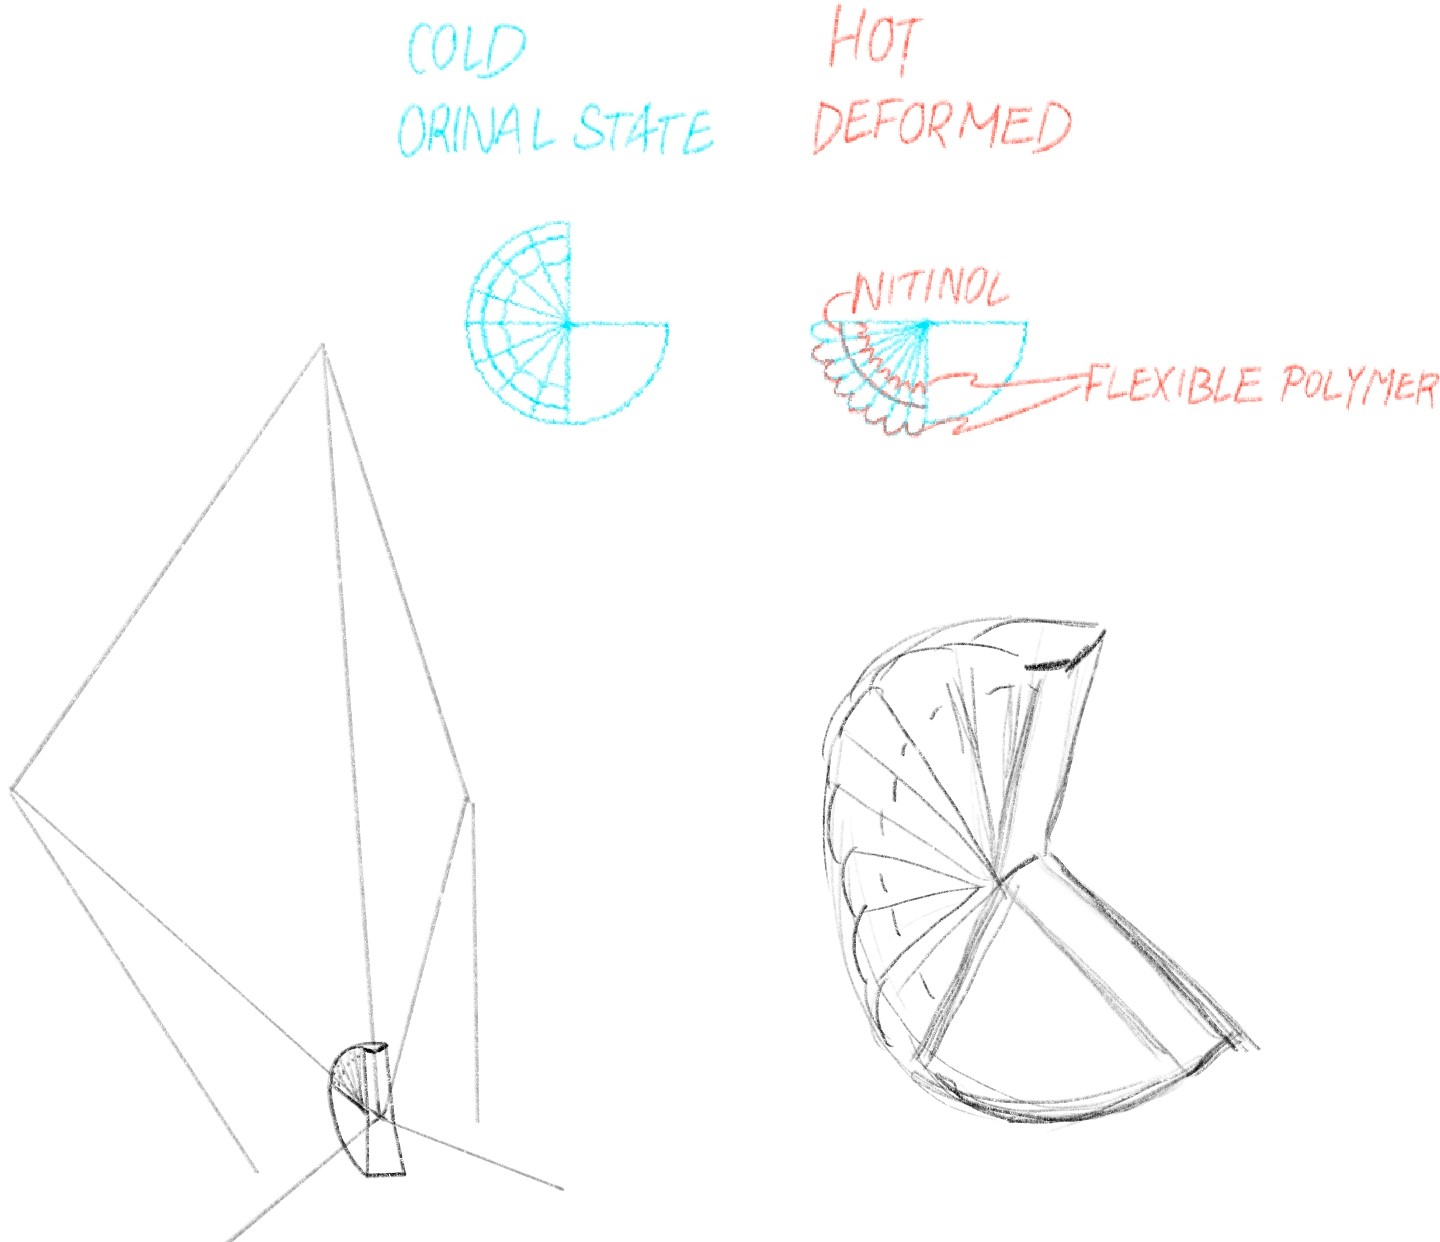 COLD
ORINAL STATE
HOT
DEFORMED
NITINOL
FLEXIBLE POLYMER